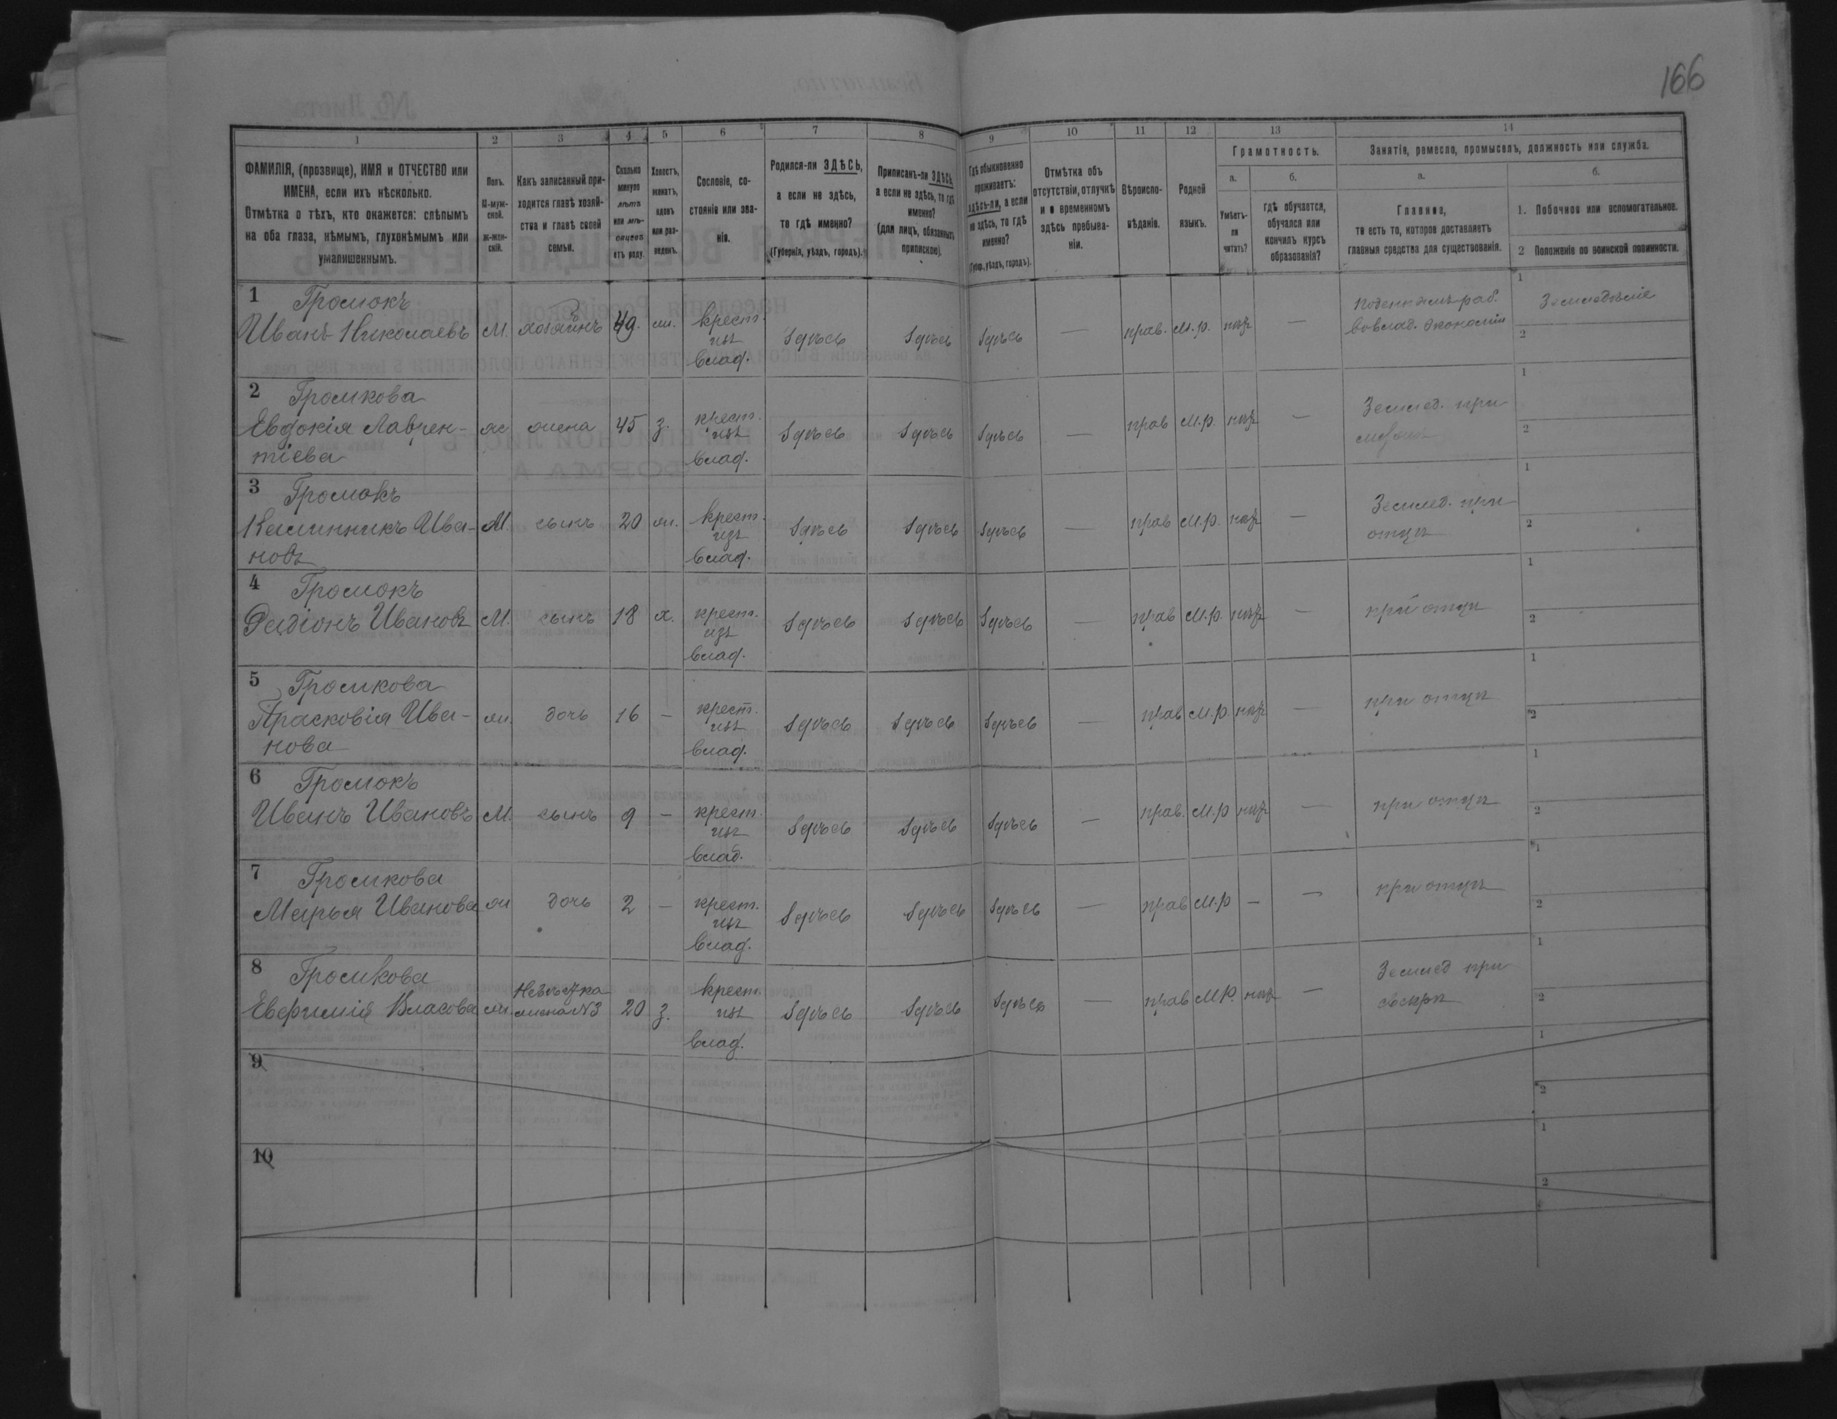 166
1 2 3 4 5 6 7 8 9 10 11 12 13 14
ФАМИЛІЯ, (прозвище), ИМЯ и ОТЧЕСТВО или
ИМЕНА, если ихъ нѣсколько.
Отмѣтка о тѣхъ, кто окажется: слѣпымъ
на оба глаза, нѣмымъ, глухонѣмымъ или
умалишеннымъ.
Полъ.
М-муж-
ской.
Ж-жен-
скій.
Какъ записанный при-
ходится главѣ хозяй-
ства и главѣ своей
семьи.
Сколько
минуло
лѣтъ
или мѣ-
сяцевъ
отъ роду.
Холостъ,
женатъ,
вдовъ
или раз-
веденъ.
Сословіе, со-
стояніе или зва-
ніе.
Родился-ли ЗДѢСЬ,
а если не здѣсь,
то гдѣ именно?
(Губернія, уѣздъ, городъ).
Приписанъ-ли ЗДѢСЬ,
а если не здѣсь, то гдѣ
именно?
(для лицъ, обязанныхъ
припискою).
Гдѣ обыкновенно
проживаетъ:
здѣсь-ли, а если
не здѣсь, то гдѣ
именно?
(Губерн., уѣздъ, городъ).
Отмѣтка объ
отсутствіи, отлучкѣ
и о временномъ
здѣсь пребыва-
ніи.
Вѣроиспо-
вѣданіе.
Родной
языкъ.
Грамотность.
а.
Умѣетъ-
ли
читать?
б.
гдѣ обучается,
обучался или
кончилъ курсъ
образованія?
Занятія, ремесло, промыселъ, должность или служба.
а.
Главное,
то есть то, которое доставляетъ
главныя средства для существованія.
б.
1. Побочное или вспомогательное.
2 Положеніе по воинской повинности.
1 Громокъ
Иванъ Николаевъ М. хозяинъ 49. ж. крест. изъ влад. здѣсь здѣсь здѣсь — прав. М.р. нѣтъ — Поденным раб. 1 Земледѣліе
2
2 Громкова
Евдокія Лаврен- ж жена 45 з. крест. изъ влад. здѣсь здѣсь здѣсь — прав М.р. нѣтъ — Землед. при 1
тіева 2
3 Громокъ
Калинникъ Ива- М сынъ 20 ж. крест. изъ влад. здѣсь здѣсь здѣсь — прав М.р. нѣтъ — Землед. при отцѣ 1
новъ 2
4 Громокъ
Иванов М. сынъ 18 х. крест. изъ влад. здѣсь здѣсь здѣсь — прав М.р. нѣтъ — при отцѣ 1
2
5 Громкова
Прасковія Ива- ж. дочь 16 — крест. изъ влад. здѣсь здѣсь здѣсь — прав М.р. нѣтъ — при отцѣ 1
нова 2
6 Громокъ
Иванъ Ивановъ М. сынъ 9 — крест. изъ влад. здѣсь здѣсь здѣсь — прав. М.р нѣтъ — при отцѣ 1
2
7 Громкова
Марья Иванова ж дочь 2 — крест. изъ влад. здѣсь здѣсь здѣсь — прав М.р — — при отцѣ 1
2
8 Громкова
Евфимія Власова ж. Невѣстка жена №3 20 з. крест. изъ влад. здѣсь здѣсь здѣсь — прав М.р. нѣтъ — Землед при свекрѣ 1
2
9 1
2
10 1
2